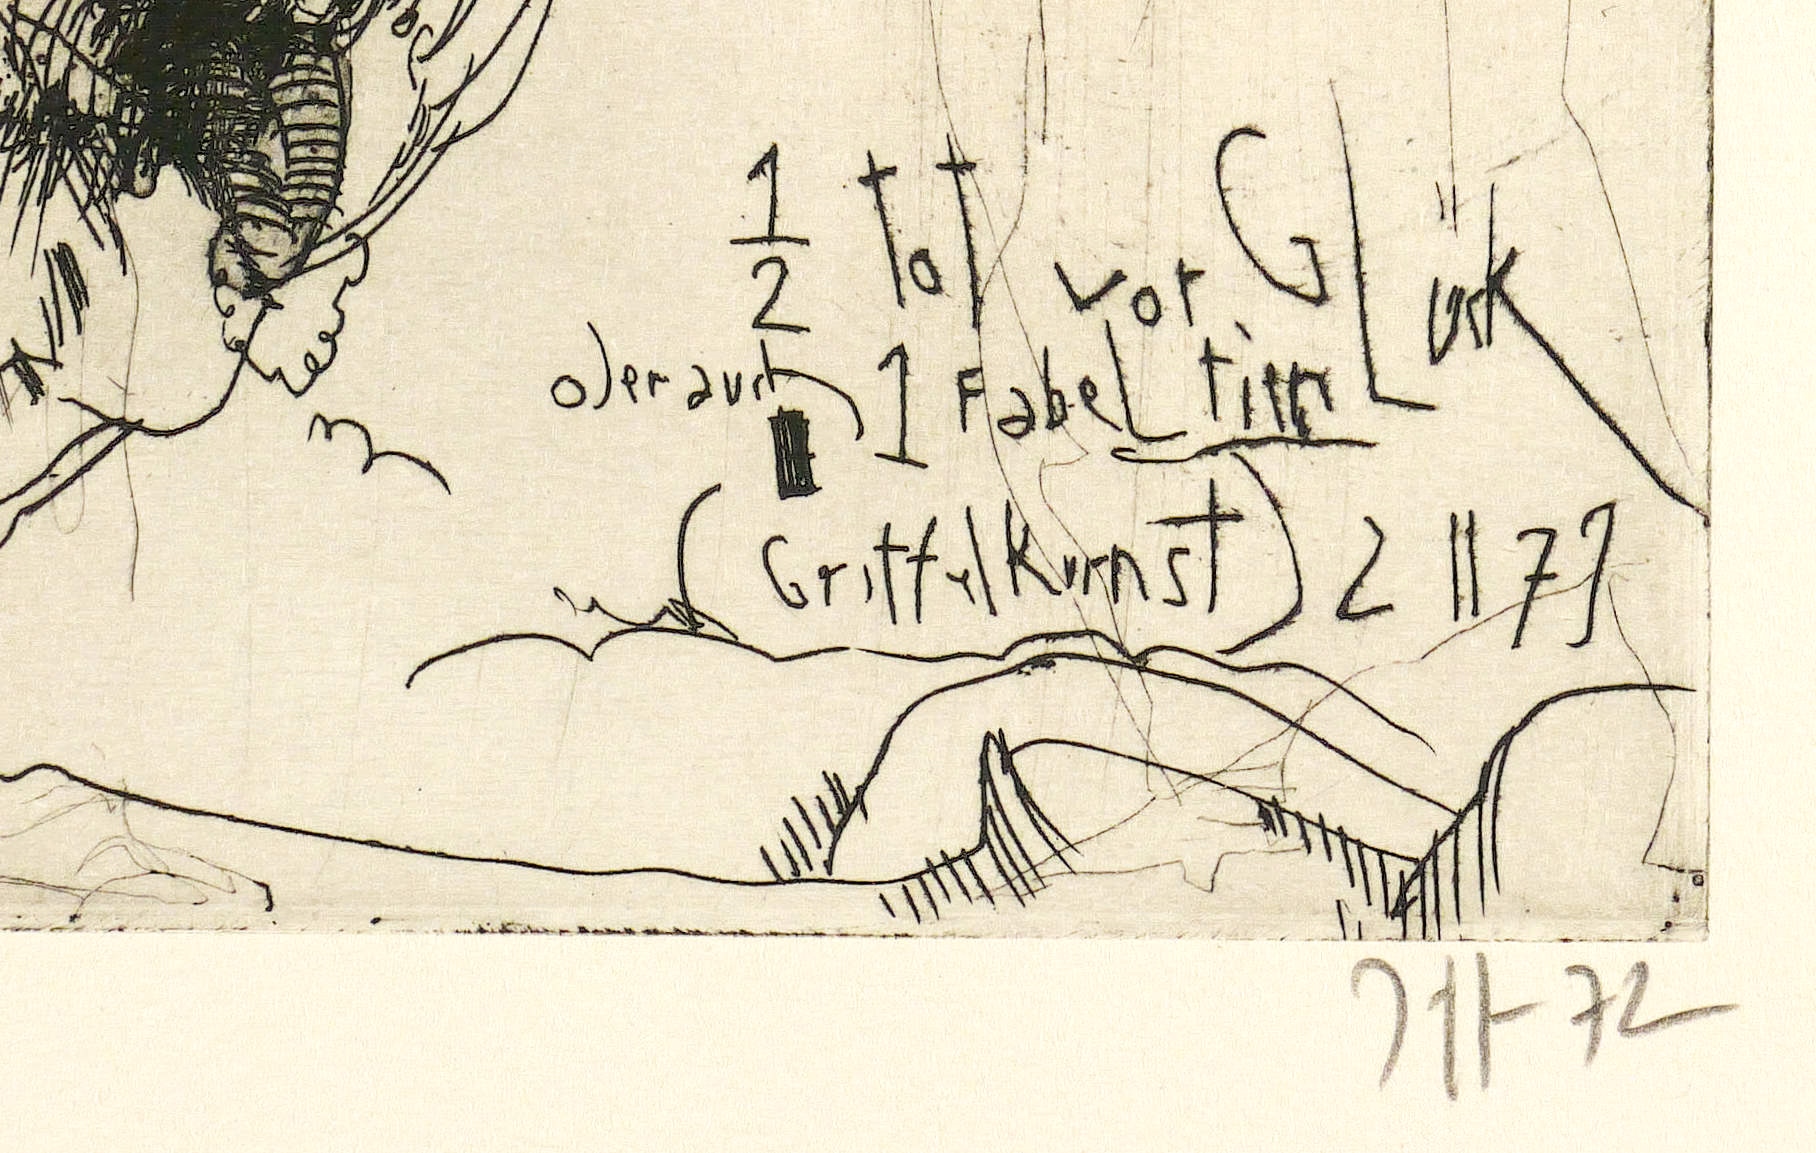 1/2 tot vor GLück
oder auch 1 FabeL tier
(GriffelKunst) 2 11 7
72